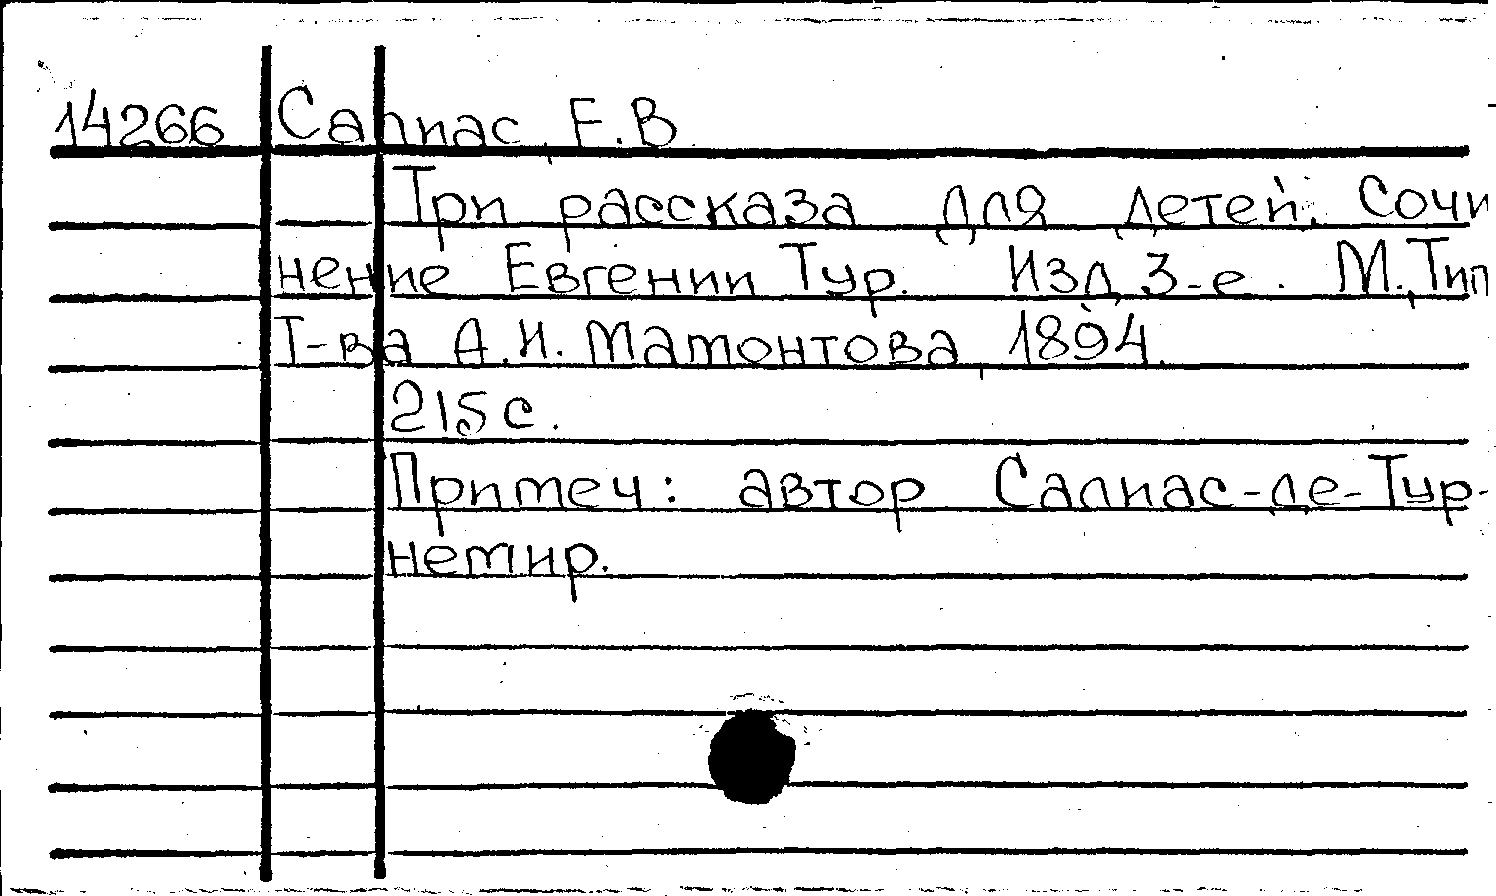 14266 Салиас, Е.В.
Три рассказа для детей. Сочи
нение Евгении Тур. Изд. 3-е. М., Тип
Т-ва А.И. Мамонтова, 1894.
215 с.
Примеч: автор Салиас-де-Тур-
немир.